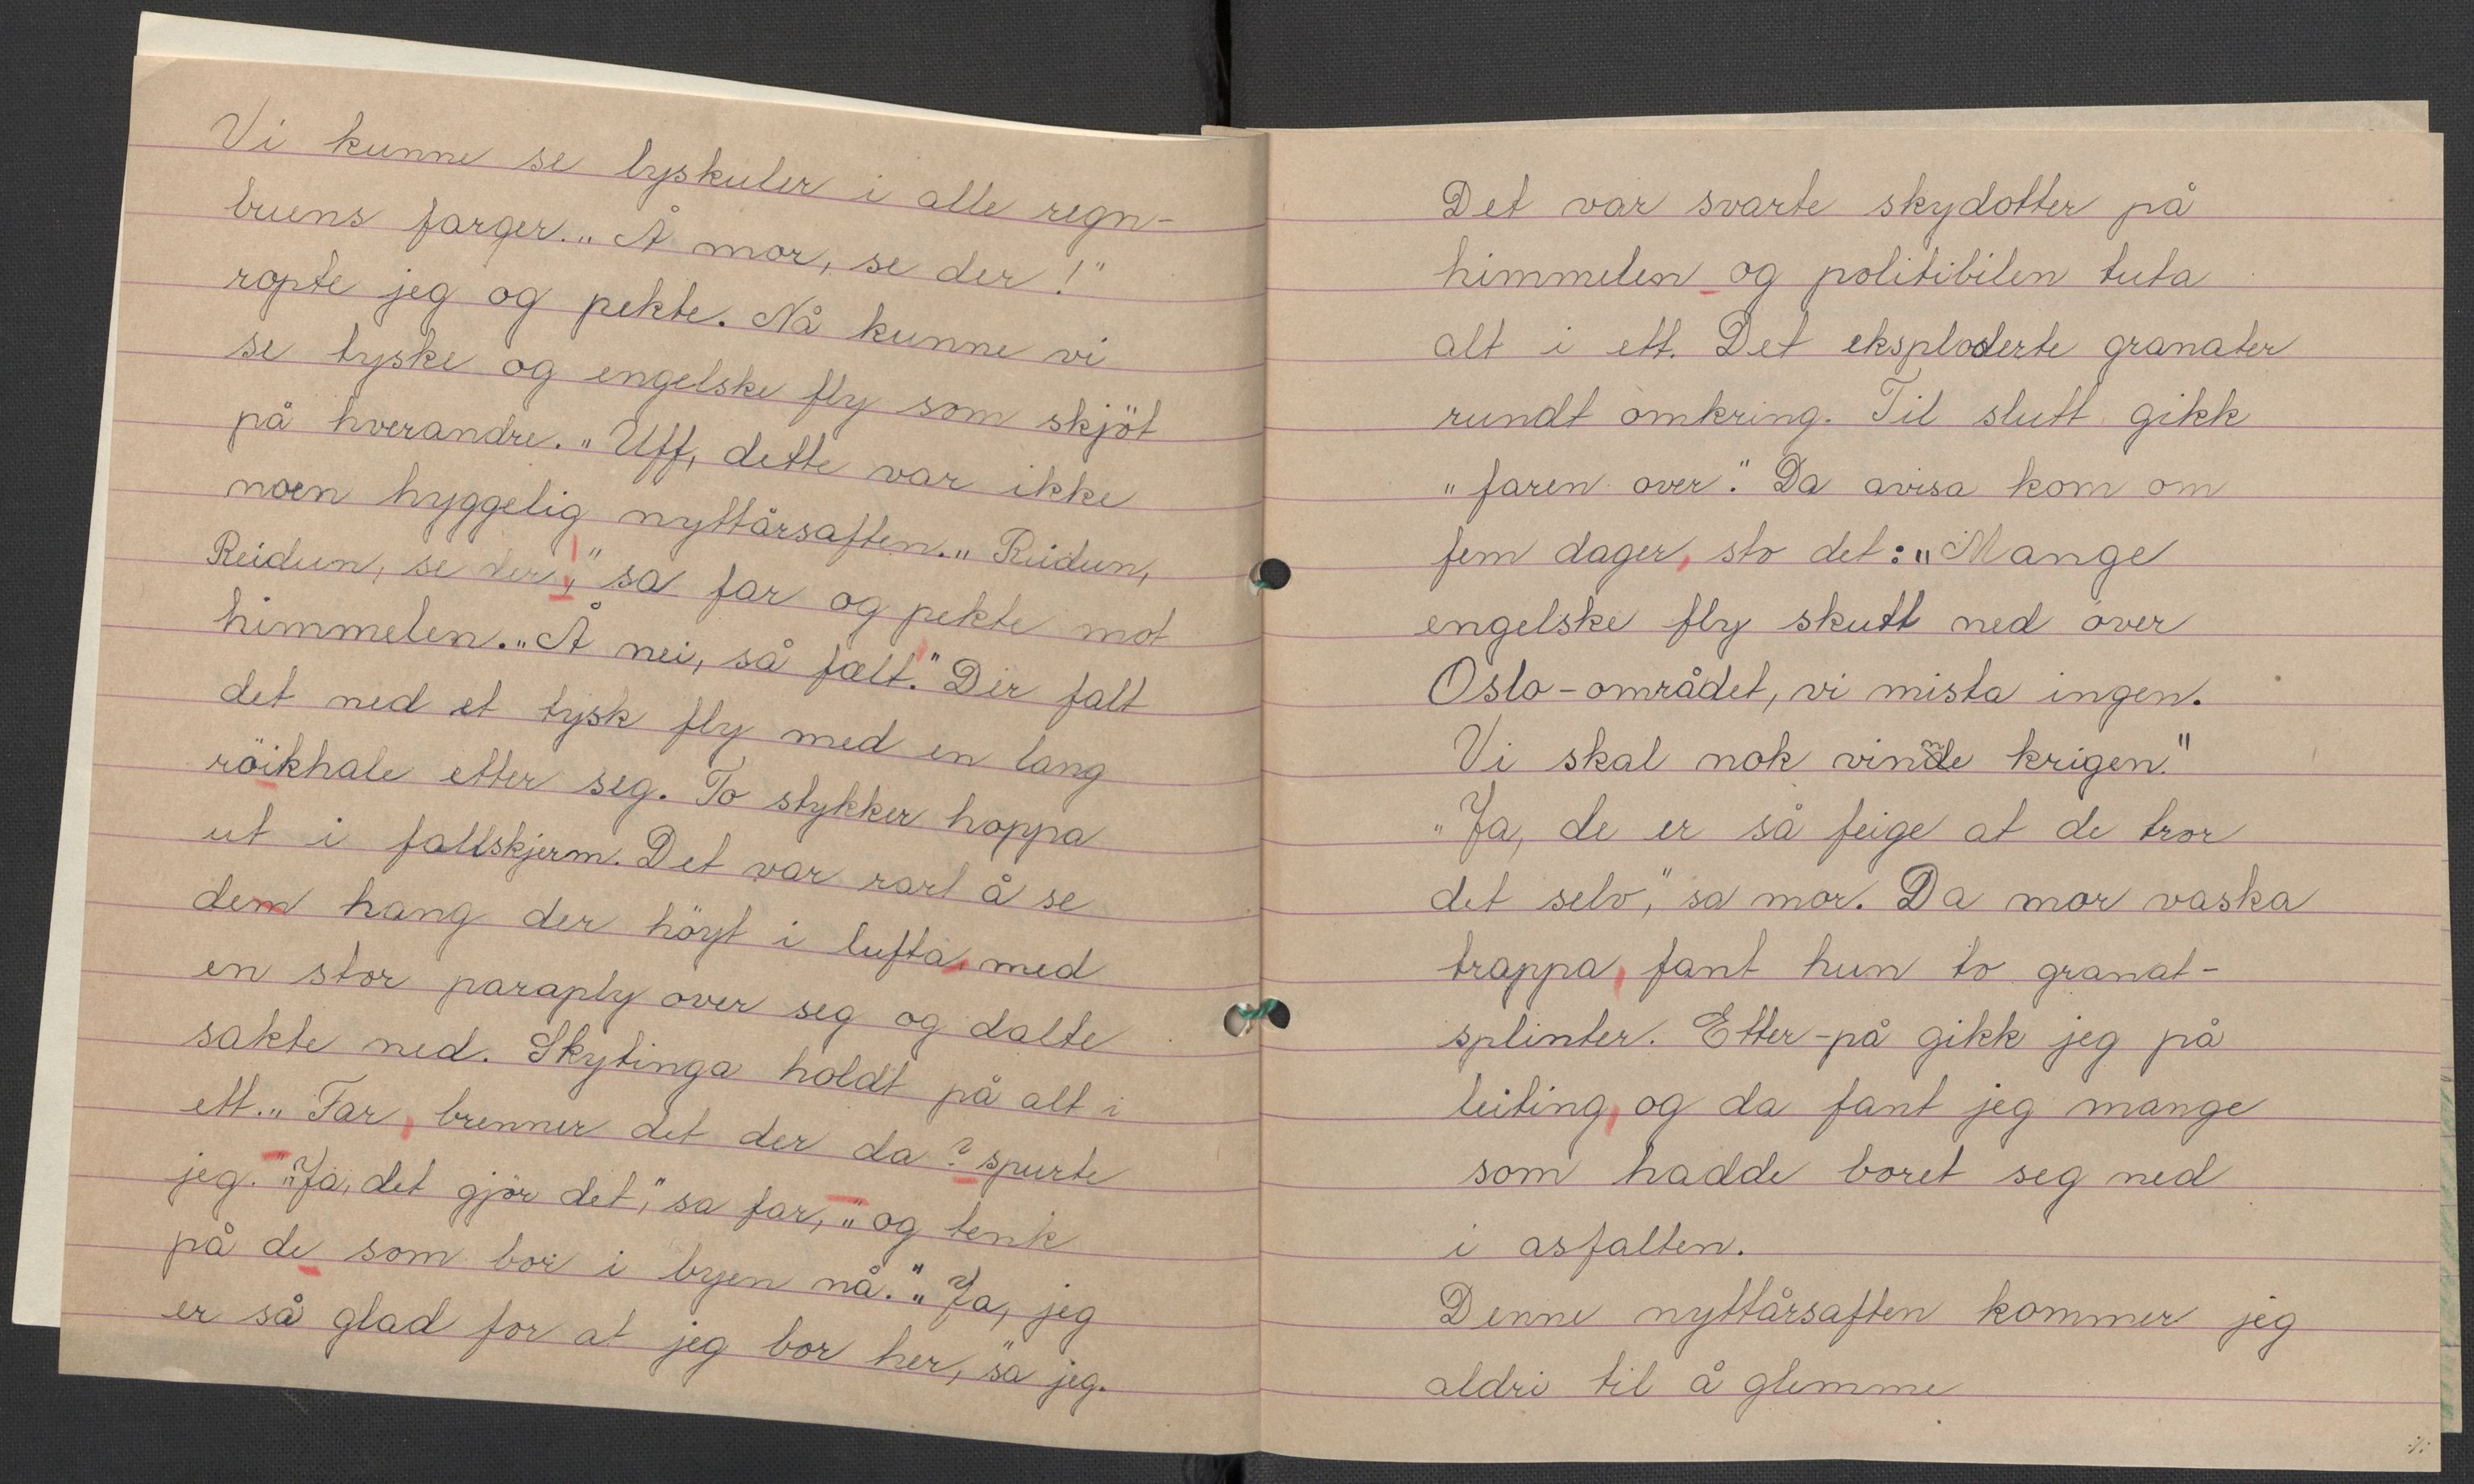 Vi kunne se lyskuler i alle regn-
buens farger. „Å mor, se der!"
ropte jeg og pekte. Nå kunne vi
se tyske og engelske fly som skjöt
på hverandre. „Uff, dette var ikke
noen hyggelig nyttårsaften. „Reidun,
Reidun, se der!" sa far og pekte mot
himmelen. „Å nei, så fælt." Der falt
det ned et tysk fly med en lang
röikhale etter seg. To stykker hoppa
ut i fallskjerm. Det var rart å se
dem hang der höyt i lufta, med
en stor paraply over seg og dalte
sakte ned. Skytinga holdt på alt i
ett. „Far, brenner det der da? spurte
jeg. „Ja, det gjör det," sa far, „og tenk
på de som bor i byen nå." „Ja, jeg
er så glad for at jeg bor her," sa jeg.
Det var svarte skydotter på
himmelen og politibilen tuta
alt i ett. Det eksploderte granater
rundt omkring. Til slutt gikk
„faren over". Da avisa kom om
fem dager, sto det: „Mange
engelske fly skutt ned over
Oslo-området, vi mista ingen.
Vi skal nok vinne krigen."
„Ja, de er så feige at de tror
det selv," sa mor. Da mor vaska
trappa, fant hun to granat-
splinter. Etter-på gikk jeg på
leiting, og da fant jeg mange
som hadde boret seg ned
i asfalten.
Denne nyttårsaften kommer jeg
aldri til å glemme